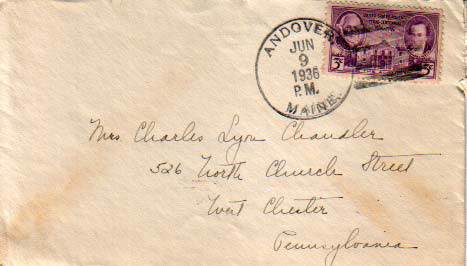 ANDOVER
JUN
9
1936
P.M.
MAINE.
3c
Mrs Charles Lyon Chandler
526 North Church Street
West Chester
Pennsylvania